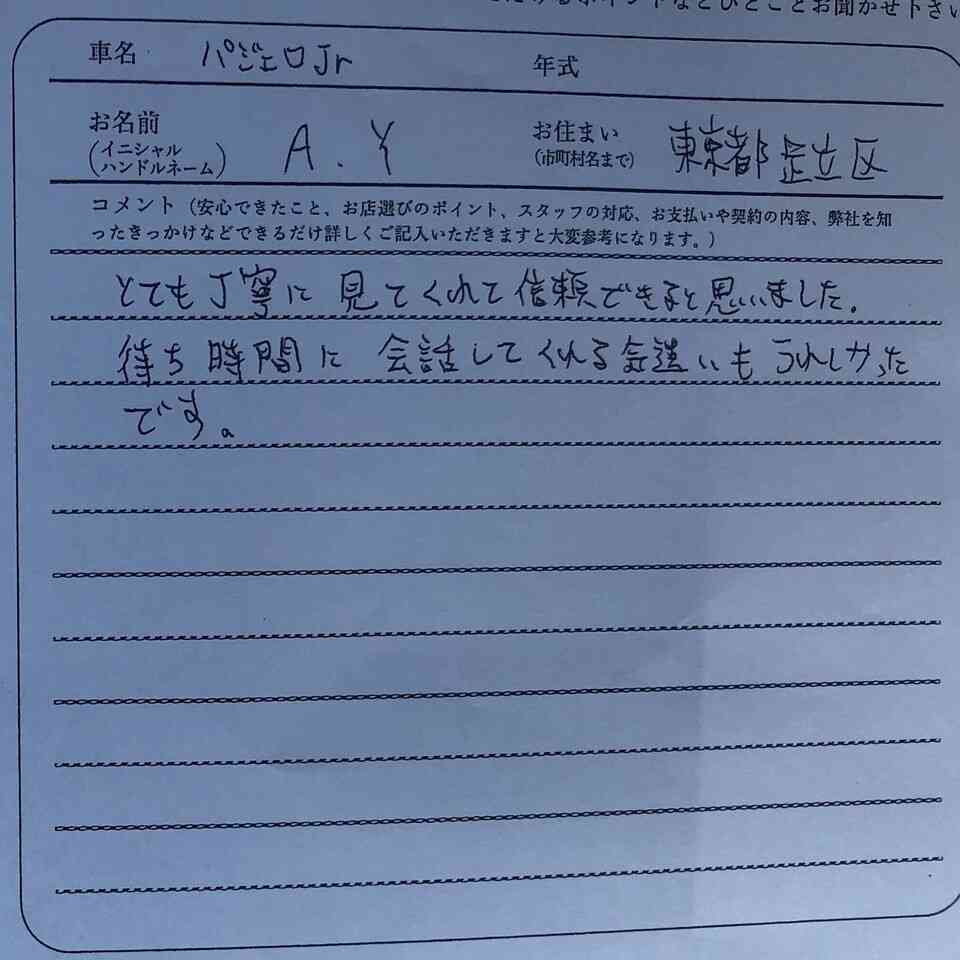 ポイントなどひとことお聞かせ下さい
車名 パジェロJr 年式
お名前 (イニシャル ハンドルネーム) A.Y お住まい (市町村名まで) 東京都足立区
コメント（安心できたこと、お店選びのポイント、スタッフの対応、お支払いや契約の内容、弊社を知
ったきっかけなどできるだけ詳しくご記入いただきますと大変参考になります。）
とても丁寧に見てくれて信頼できると思いました。
待ち時間に会話してくれる気遣いもうれしかった
です。